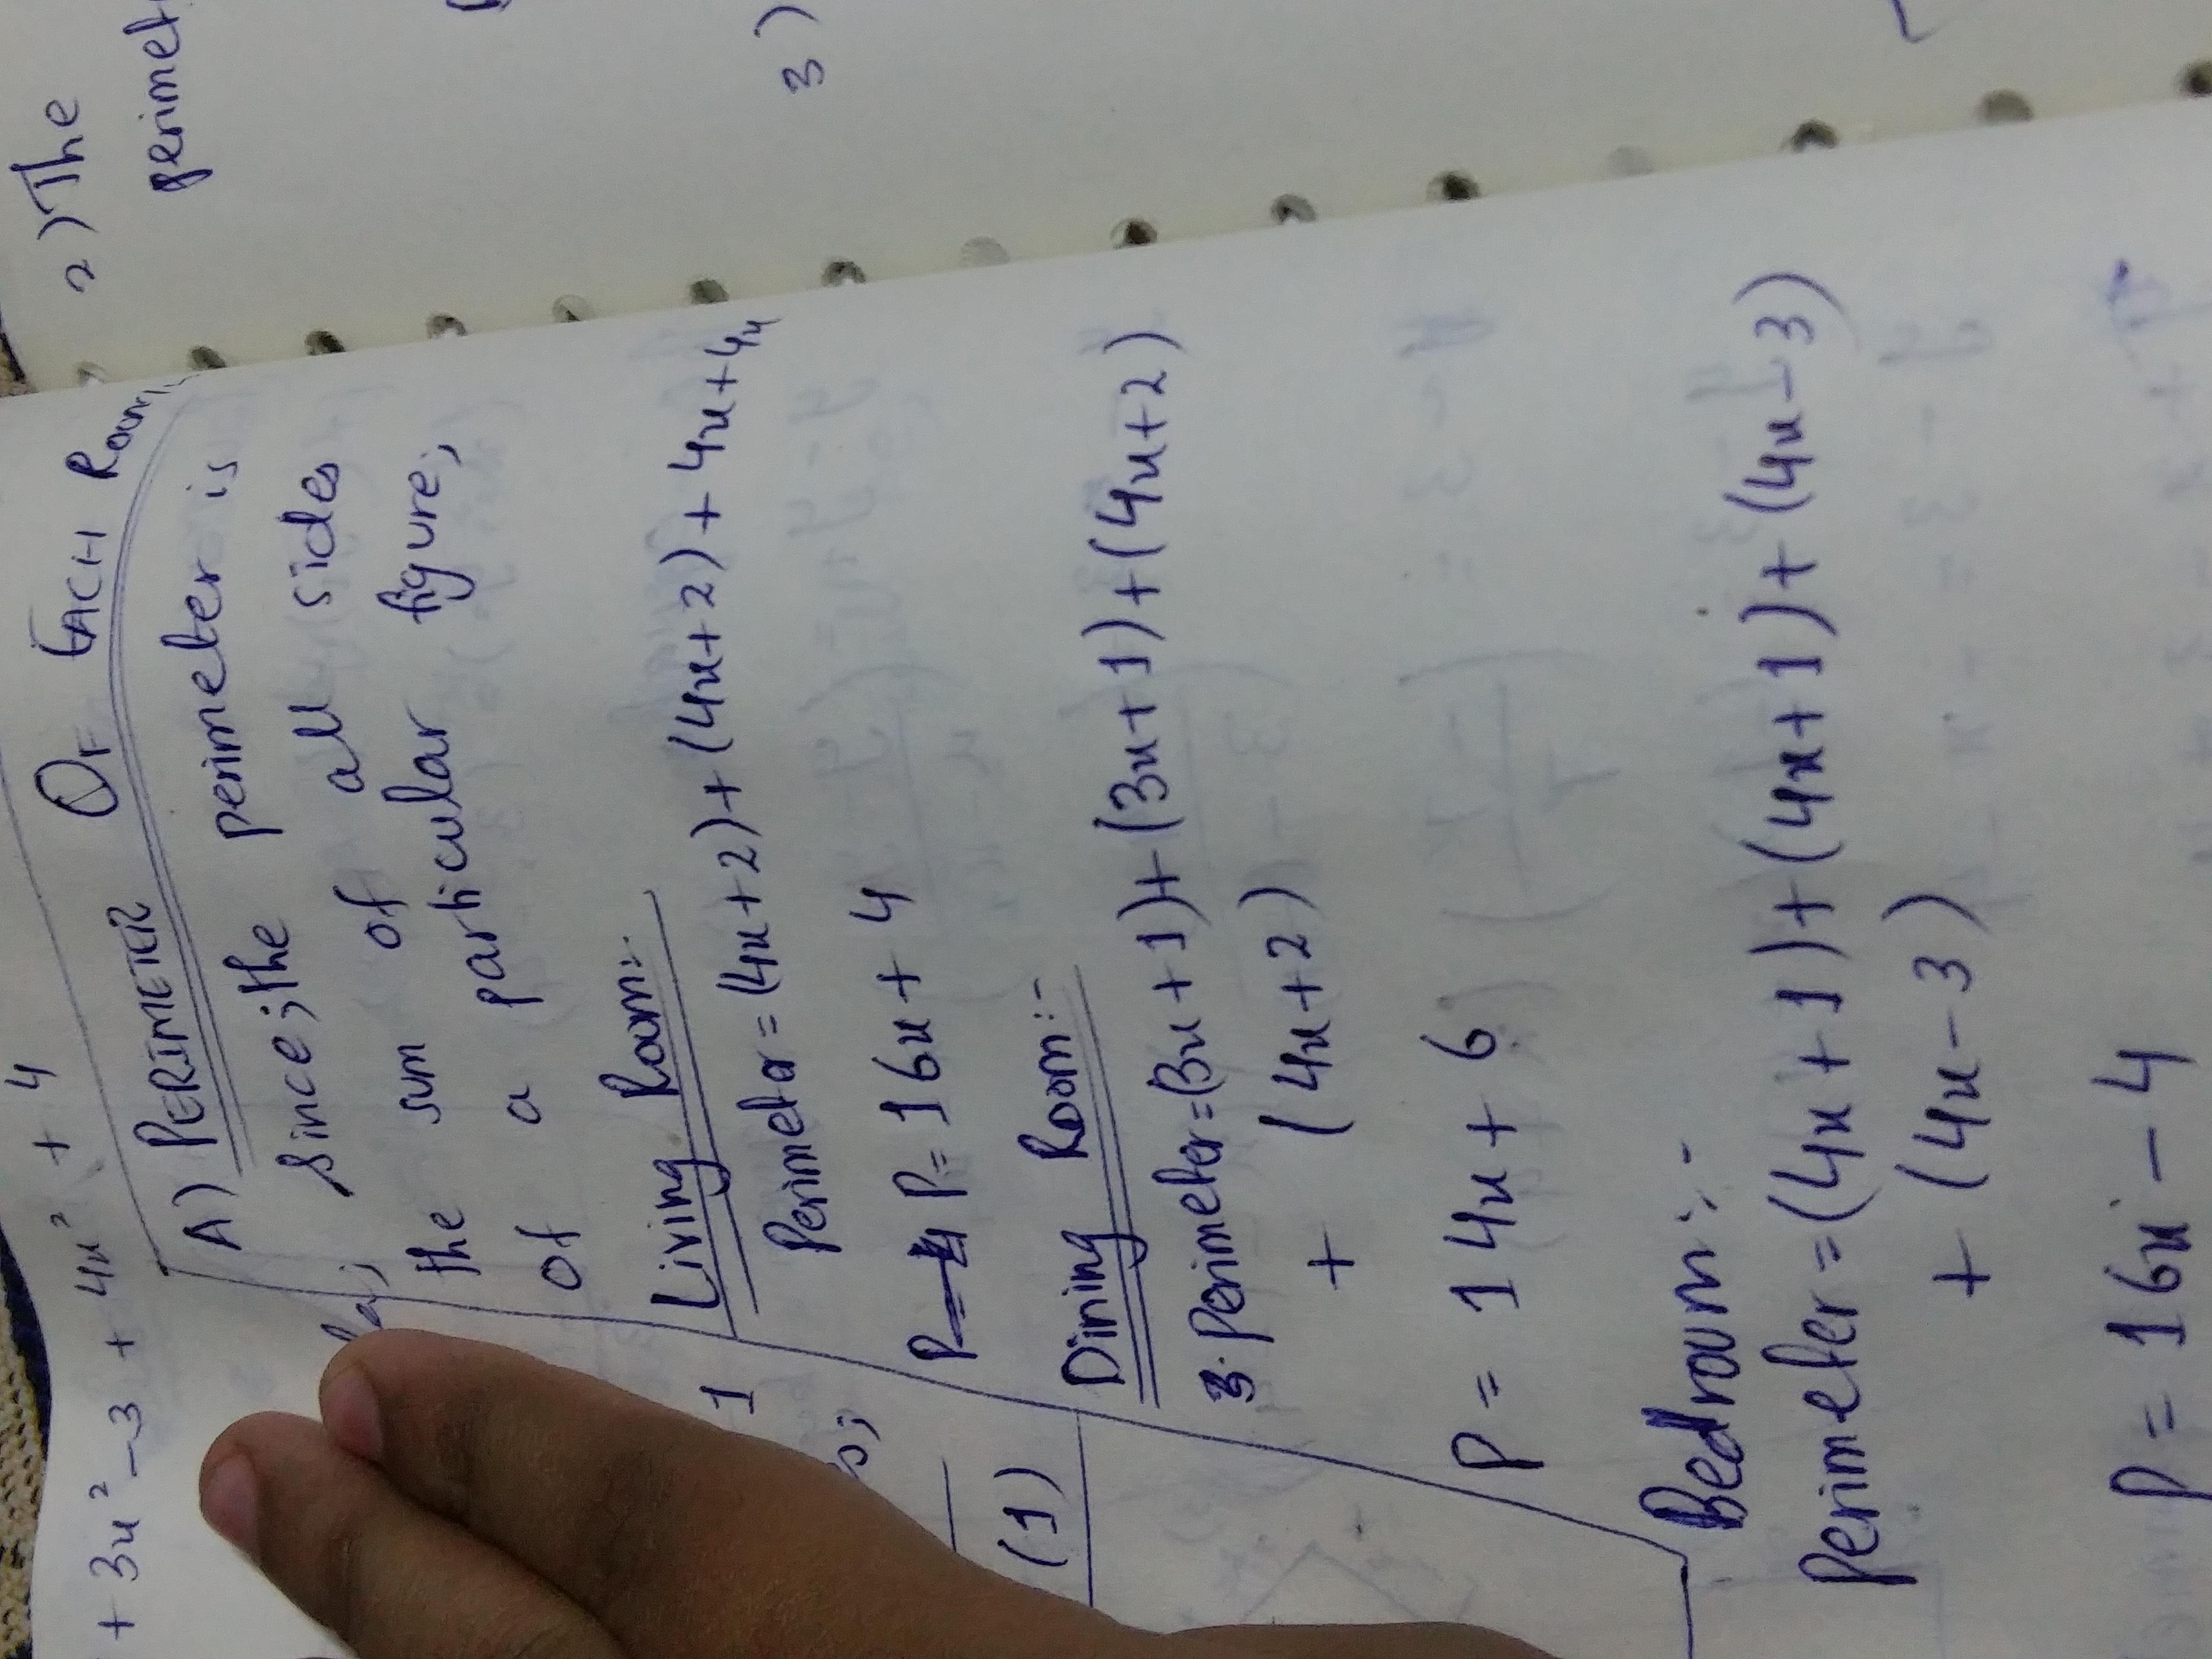 + 3x² - 3 + 4x² + 4
A) PERIMETER OF EACH ROOM
Since; the perimeter is
the sum of all sides
of a particular figure;
Living Room:-
Perimeter = (4x+2) + (4x+2) + 4x + 4x
P = 16x + 4
Dining Room:-
Perimeter = (3x+1) + (3x+1) + (4x+2)
+ (4x+2)
P = 14x + 6
Bedroom:-
Perimeter = (4x+1) + (4x+1) + (4x-3)
+ (4x-3)
P = 16x - 4
1
(1)
2) The
perimet
3)